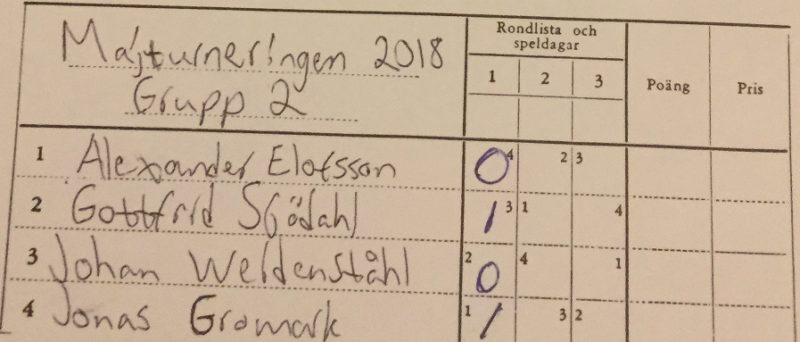 Majturneringen 2018
Grupp 2
Rondlista och
speldagar
1 2 3
Poäng
Pris
1 Alexander Elofsson 0 4 2 3
2 Gottfrid Sjödahl 1 3 1 4
3 Johan Weidenståhl 2 0 4 1
4 Jonas Gromark 1 1 3 2